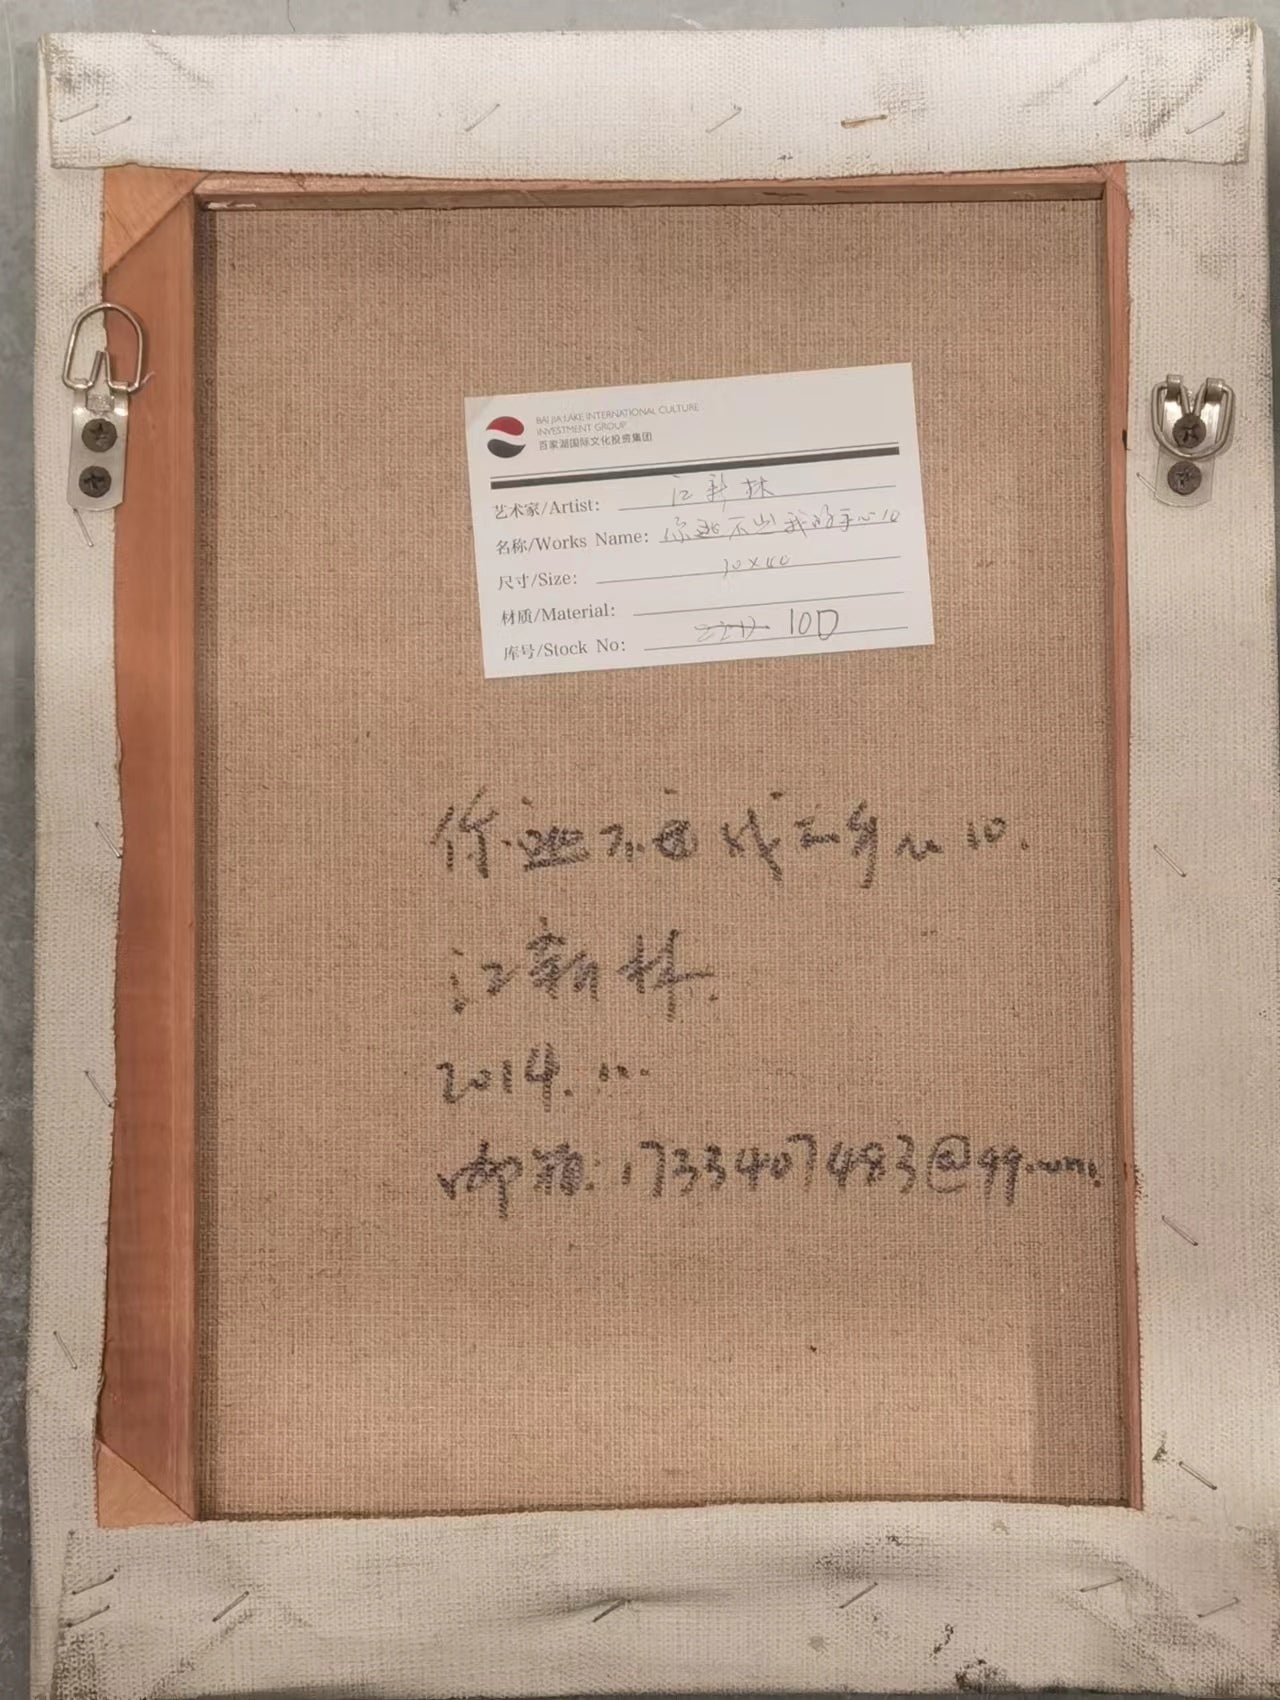 BAI JIA LAKE INTERNATIONAL CULTURE
INVESTMENT GROUP
百家湖国际文化投资集团
艺术家/Artist: 江新林
名称/Works Name: 你逃不出我的手心10
尺寸/Size: 30×40
材质/Material:
库号/Stock No: 10D
你逃不出我的手心10.
江新林.
2014.
邮箱:1733407483@qq.com.